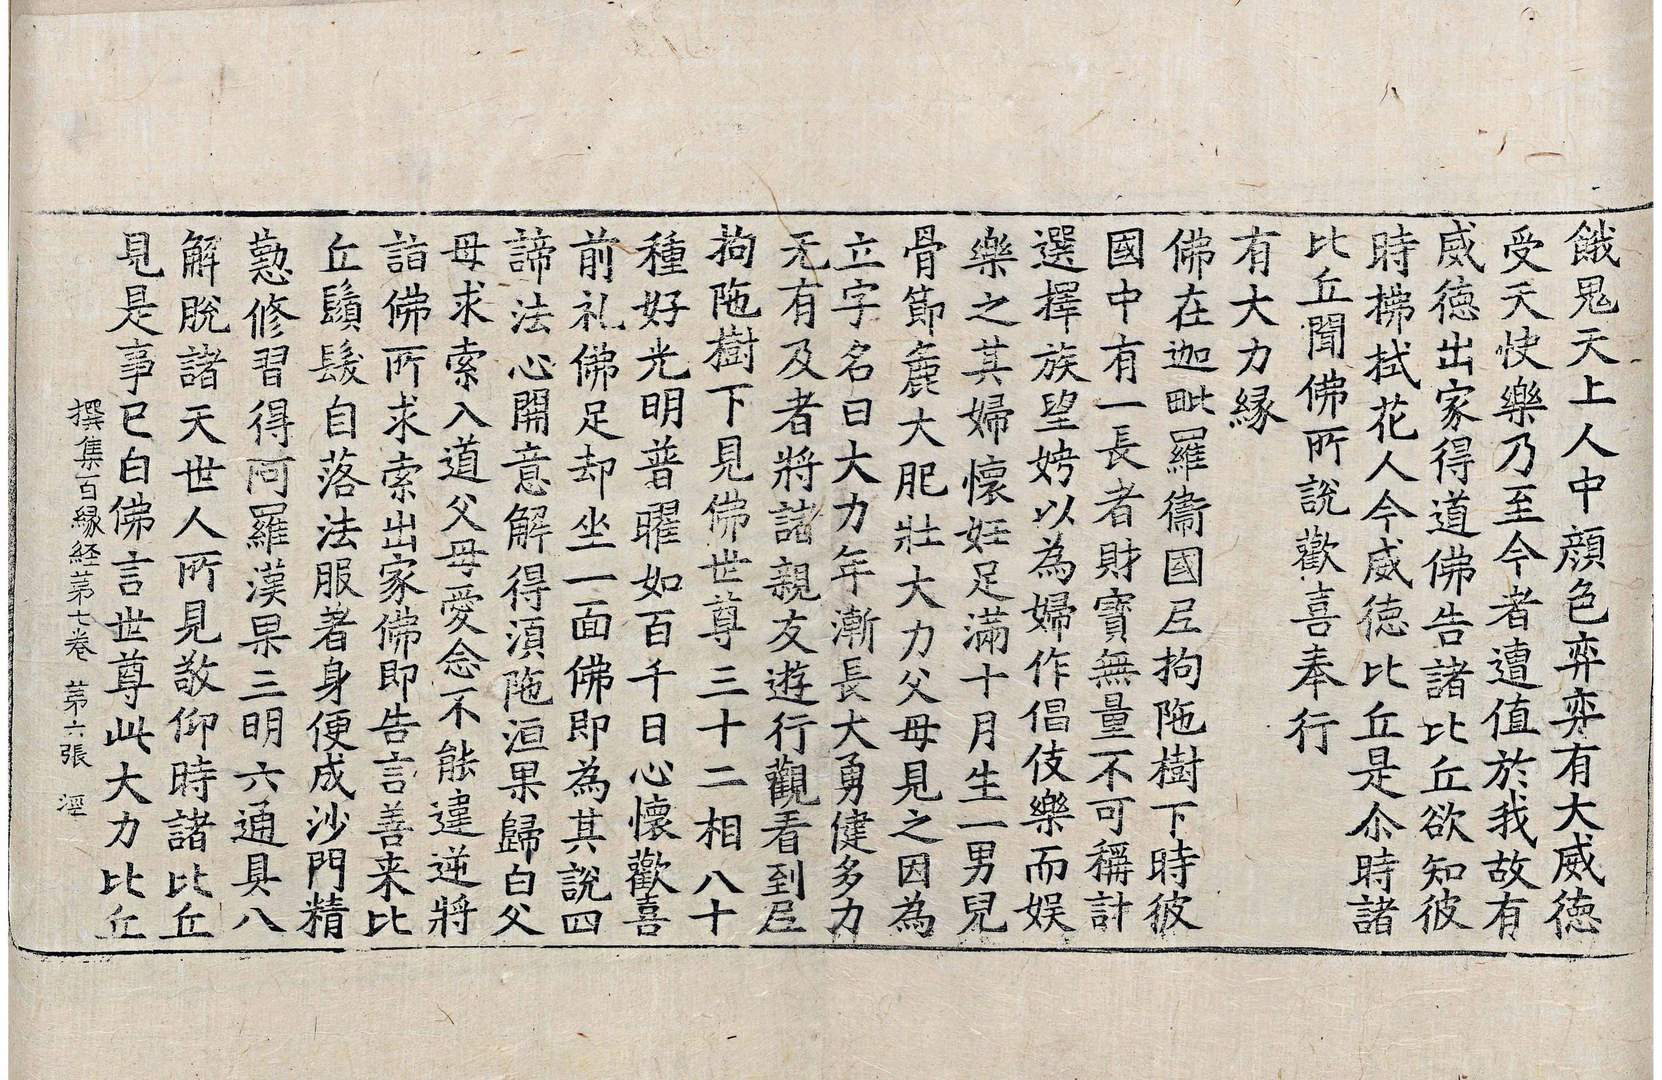 餓鬼天上人中顔色弈弈有大威徳
受天快樂乃至今者遭值於我故有
威徳出家得道佛告諸比丘欲知彼
時拂拭花人今威徳比丘是尒時諸
比丘聞佛所説歡喜奉行
有大力縁
佛在迦毗羅衞國尼拘陁樹下時彼
國中有一長者財寶無量不可稱計
選擇族望娉以為婦作倡伎樂而娱
樂之其婦懷妊足滿十月生一男兒
骨節麁大肥壯大力父母見之因為
立字名曰大力年漸長大勇健多力
无有及者將諸親友遊行觀看到尼
拘陁樹下見佛世尊三十二相八十
種好光明普曜如百千日心懷歡喜
前礼佛足却坐一面佛即為其説四
諦法心開意解得湏陁洹果歸白父
母求索入道父母愛念不能違逆將
詣佛所求索出家佛即告言善来比
丘鬚髮自落法服著身便成沙門精
懃修習得阿羅漢果三明六通具八
解脫諸天世人所見敬仰時諸比丘
見是事已白佛言世尊此大力比丘
撰集百縁経苐七卷　苐六張　溼